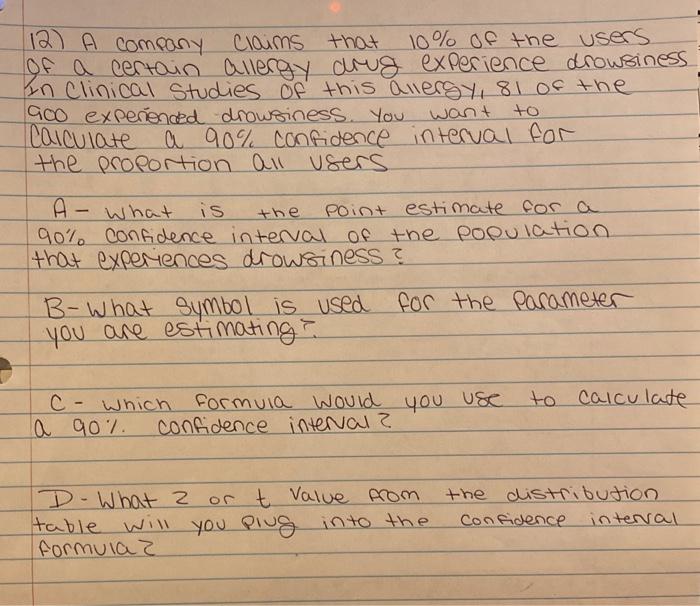 12) A company claims that 10% of the users
of a certain allergy drug experience drowsiness
In clinical studies of this allergy, 81 of the
900 experienced drowsiness. You want to
Calculate a 90% confidence interval for
the proportion all users
A - what is the point estimate for a
90% confidence interval of the population
that experiences drowsiness?
B - What symbol is used for the parameter
you are estimating?
C - which formula would you use to calculate
a 90% confidence interval?
D - What z or t value from the distribution
table will you plug into the confidence interval
formula?